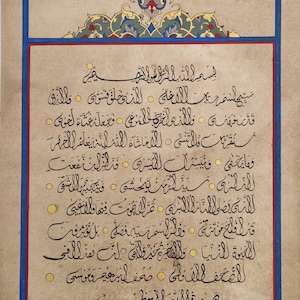 بسم الله الرحمن الرحيم
سبح اسم ربك الاعلى الذي خلق فسوى والذي
قدر فهدى والذي اخرج المرعى فجعله غثاء احوى
سنقرئك فلا تنسى الا ما شاء الله انه يعلم الجهر
وما يخفى ونيسرك لليسرى فذكر ان نفعت
الذكرى سيذكر من يخشى ويتجنبها الاشقى
الذي يصلى النار الكبرى ثم لا يموت فيها ولا يحيى
قد افلح من تزكى وذكر اسم ربه فصلى بل تؤثرون
الحيوة الدنيا والاخرة خير وابقى ان هذا لفي
الصحف الاولى صحف ابرهيم وموسى